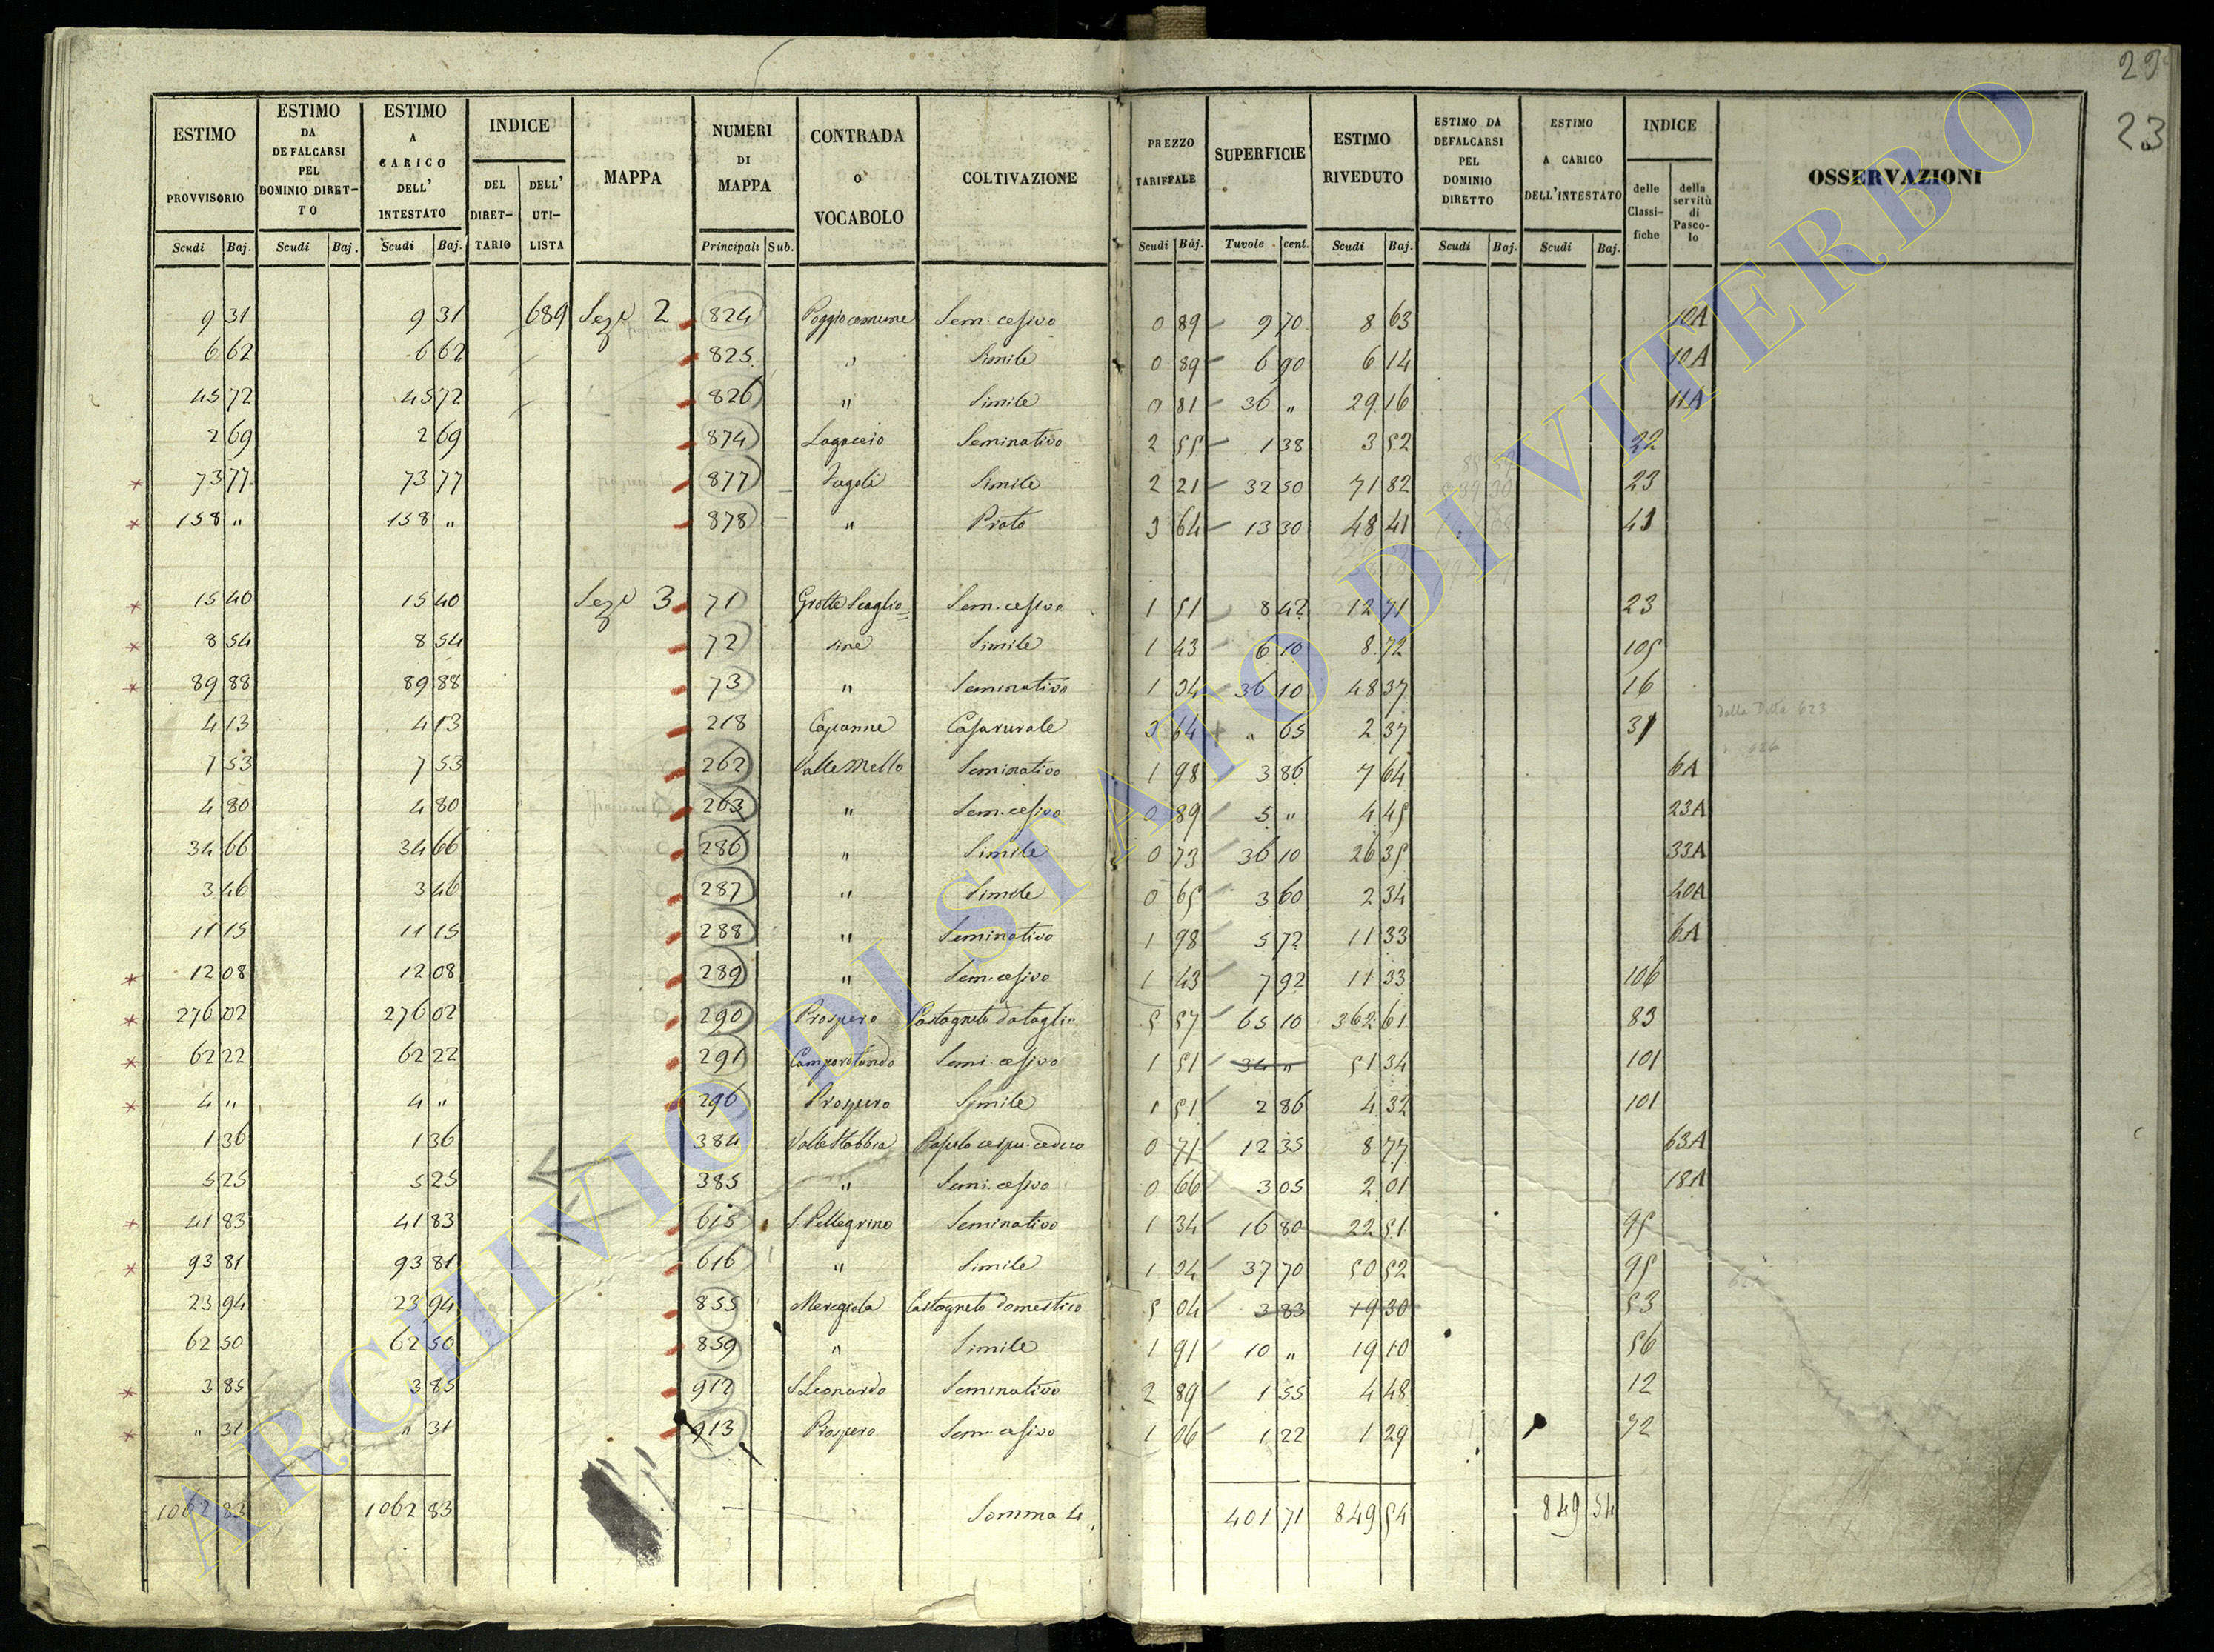 29
23
ESTIMO PROVVISORIO Scudi Baj.
ESTIMO DA DEFALCARSI PEL DOMINIO DIRET-TO Scudi Baj.
ESTIMO A CARICO DELL' INTESTATO Scudi Baj.
INDICE DEL DIRET-TARIO DELL' UTI-LISTA
MAPPA
NUMERI DI MAPPA Principali Sub.
CONTRADA o VOCABOLO
COLTIVAZIONE
PREZZO TARIFFALE Scudi Baj.
SUPERFICIE Tavole cent.
ESTIMO RIVEDUTO Scudi Baj.
ESTIMO DA DEFALCARSI PEL DOMINIO DIRETTO Scudi Baj.
ESTIMO A CARICO DELL'INTESTATO Scudi Baj.
INDICE delle Classi-fiche della servitù di Pasco-lo
OSSERVAZIONI
9 31 9 31 689 Sez.e 2 824 Poggio comune Sem. cesivo 0 89 9 70 8 63 10A
6 62 6 62 825 " Simile 0 89 6 90 6 14 10A
45 72 45 72 826 " Simile 0 81 36 " 29 16 11A
2 69 2 69 874 Lagaccio Seminativo 2 55 1 38 3 52 22
73 77 73 77 877 Simile 2 21 32 50 71 82 23
158 " 158 " 878 " Prato 3 64 13 30 48 41 43
15 40 15 40 Sez.e 3 71 Grotte Scaglio= Sem. cesivo 1 51 8 42 12 71 23
8 54 8 54 72 sine Simile 1 43 6 10 8 72 105
89 88 89 88 73 " Seminativo 1 34 36 10 48 37 16
4 13 4 13 218 Capanne Casa rurale 3 64 " 65 2 37 31 dalla Ditta 623
7 53 7 53 262 Valle Mello Seminativo 1 98 3 86 7 64 6A
4 80 4 80 263 " Sem. cesivo 0 89 5 " 4 45 23A
34 66 34 66 286 " Simile 0 73 36 10 26 35 33A
3 46 3 46 287 " Simile 0 65 3 60 2 34 40A
11 15 11 15 288 " Seminativo 1 98 5 72 11 33 6A
12 08 12 08 289 " Sem. cesivo 1 43 7 92 11 33 106
276 02 276 02 290 Prospero Castagneto da taglio 5 57 65 10 362 61 83
62 22 62 22 291 Camporotondo Semi. cesivo 1 51 34 " 51 34 101
4 " 4 " 296 Prospero Simile 1 51 2 86 4 32 101
1 36 1 36 384 Valle Stabbia Pascolo cespu. ceduo 0 71 12 35 8 77 63A
5 25 5 25 385 " Semi. cesivo 0 66 3 05 2 01 18A
41 83 41 83 615 S. Pellegrino Seminativo 1 34 16 80 22 51 95
93 81 93 81 616 " Simile 1 34 37 70 50 52 95
23 94 23 94 855 Castagneto domestico 5 04 3 83 19 30 53
62 50 62 50 859 " Simile 1 91 10 " 19 10 56
3 85 3 85 912 S. Leonardo Seminativo 2 89 1 55 4 48 12
" 31 " 31 913 Prospero Sem. cesivo 1 06 1 22 1 29 72
1062 83 1062 83 Somma 401 71 849 54 849 54
ARCHIVIO DI STATO DI VITERBO